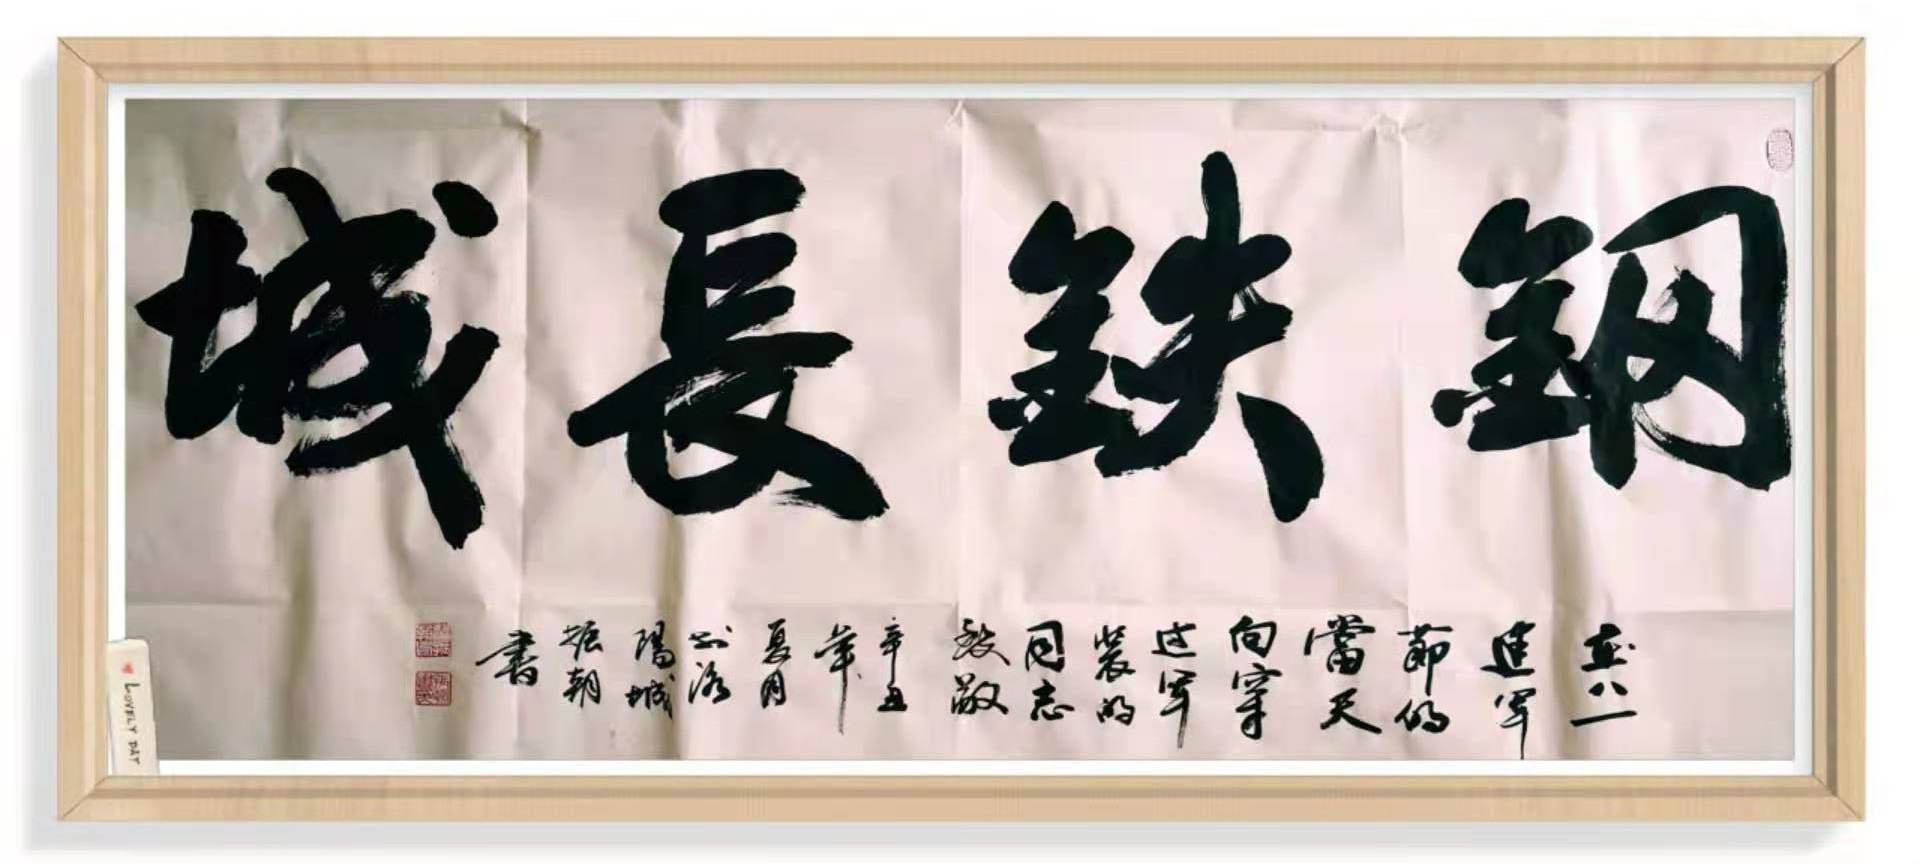 鋼鉄長城
在八一
建军
節的
當天
向穿
过军
装的
同志
致敬
辛丑
年
夏月
於洛
陽城
振朝
書
LOVELY DAY